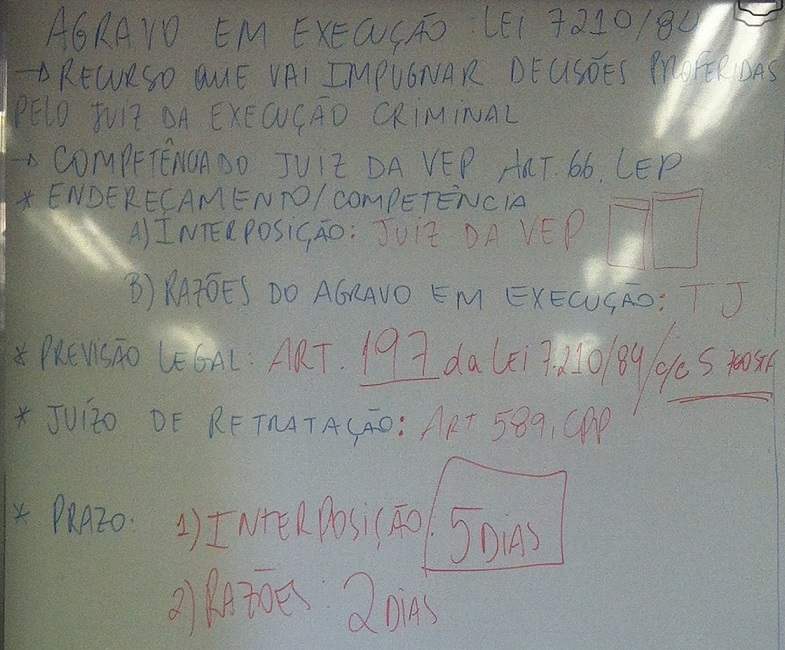 AGRAVO EM EXECUÇÃO: LEI 7210/84
→ RECURSO QUE VAI IMPUGNAR DECISÕES PROFERIDAS
PELO JUIZ DA EXECUÇÃO CRIMINAL
→ COMPETÊNCIA DO JUIZ DA VEP ART. 66, LEP
* ENDEREÇAMENTO/COMPETÊNCIA
A) INTERPOSIÇÃO: JUIZ DA VEP
B) RAZÕES DO AGRAVO EM EXECUÇÃO: TJ
* PREVISÃO LEGAL: ART. 197 da Lei 7.210/84 c/c S 700 STF
* JUÍZO DE RETRATAÇÃO: ART 589, CPP
* PRAZO: 1) INTERPOSIÇÃO: 5 DIAS
2) RAZÕES: 2 DIAS